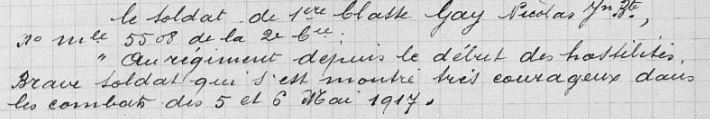 le soldat de 1ere Classe Gay Nicolas Jn Bte,
no mle 5508 de la 2e Cie:
" Au régiment depuis le début des hostilités.
Brave soldat qui s'est montré très courageux dans
les combats des 5 et 6 Mai 1917.